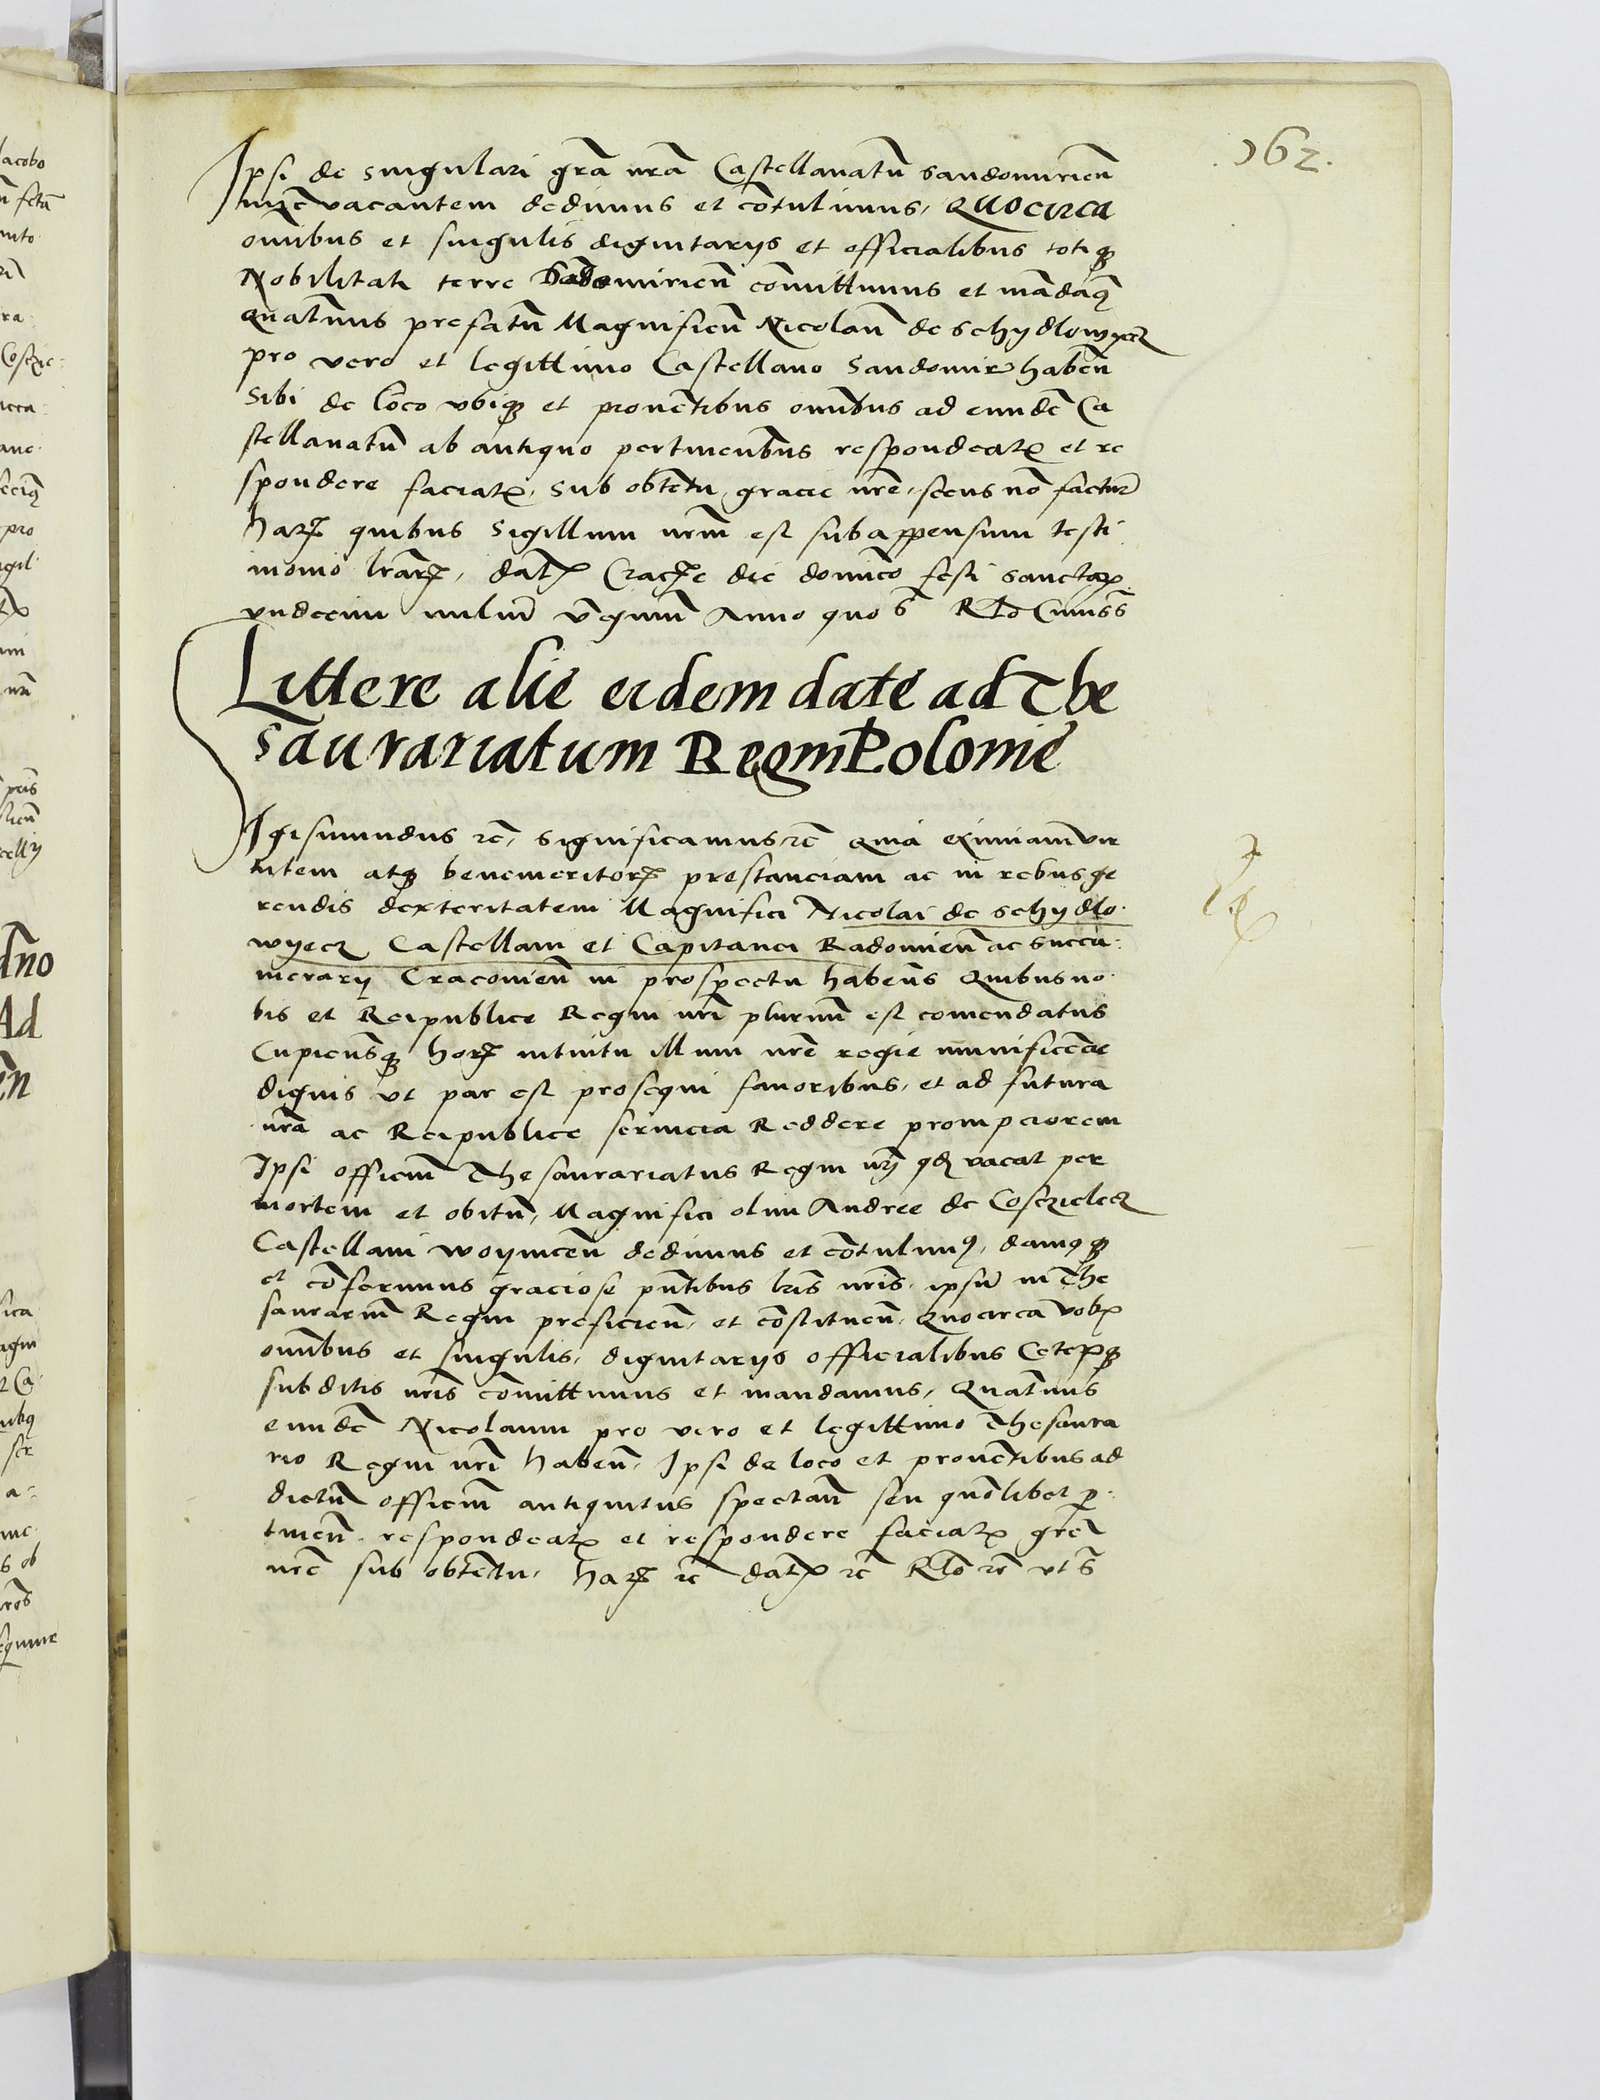 162.
Ipsi de singulari grā nrā Castellanatū Sandomirieñ
nūc vacantem dedimus et cōtulimus, Quocirca
omibus et singulis dignitarijs et officialibus totiqꝫ
Nobilitati terre Sādomirieñ cōmittimus et mādaꝰ
quatūus prefatū Magnificū Nicolaū de Schydlowyecz
pro vero et legittimo Castellano Sandomir habeñ
sibi de loco vbiqꝫ et prouētibus omībus ad eundē Ca
stellanatū ab antiquo pertinentibus respondeatꝭ et re
spondere faciatꝭ, sub obtētu gracie nrē, secus nō factur
harꝝ quibus Sigillum nrm̄ est subappensum testi
monio lrarꝝ, datꝭ Cracꝫe die domīco festi sanctaꝝ
vndecim miliū v̄ginū Anno quo s̄ Rlo Cuius s̄
Littere alie eidem date ad The
saurariatum Regni Polonie
Igismundus ꝛc̄, significamus ꝛc̄ Quia eximiam vir
tutem atqꝫ benemeritorꝝ prestanciam ac in rebus ge
rendis dexteritatem Magnifici Nicolai de Schydlo
wyecz Castellani et Capitanei Radomieñ ac Succa:
merarij Cracovieñ in prospectu habeñs Quibus no
bis et Reipublice Regni nrī plurimū est comendatus
Cupieñsqꝫ horꝝ intuitu illum nrē regie munificēcie
dignis vt par est prosequi fauoribus, et ad futura
nrā ac Reipublice seruicia Reddere prompciorem
Ipsi officiū Thesaurariatus Regni nrī qd vacat per
mortem et obitū, Magnifici olim Andree de Coszieless
Castellani Woynicēn dedimus et cōtulimꝰ, damꝰqꝫ
et cōferimus graciose pn̄tibus lrīs nrīs, ipsū in The
saurariū Regni preficieñ, et cōstitueñ, Quocirca vobꝭ
omībus et singulis, dignitarijs officialibus Ceterꝭqꝫ
subditis nrīs cōmittimus et mandamus, Quatūus
eundē Nicolaum pro vero et legittimo Thesaura
rio Regni nrī habeñ, Ipsi de loco et prouētibus ad
dictū officiū antiquitus spectañ seu quōlibet p
tineñ respondeatꝭ et respondere faciatꝭ grē
nrē sub obtētu, harꝝ ꝛc̄ datꝭ ꝛc̄ Rlō ꝛc̄ vt s̄